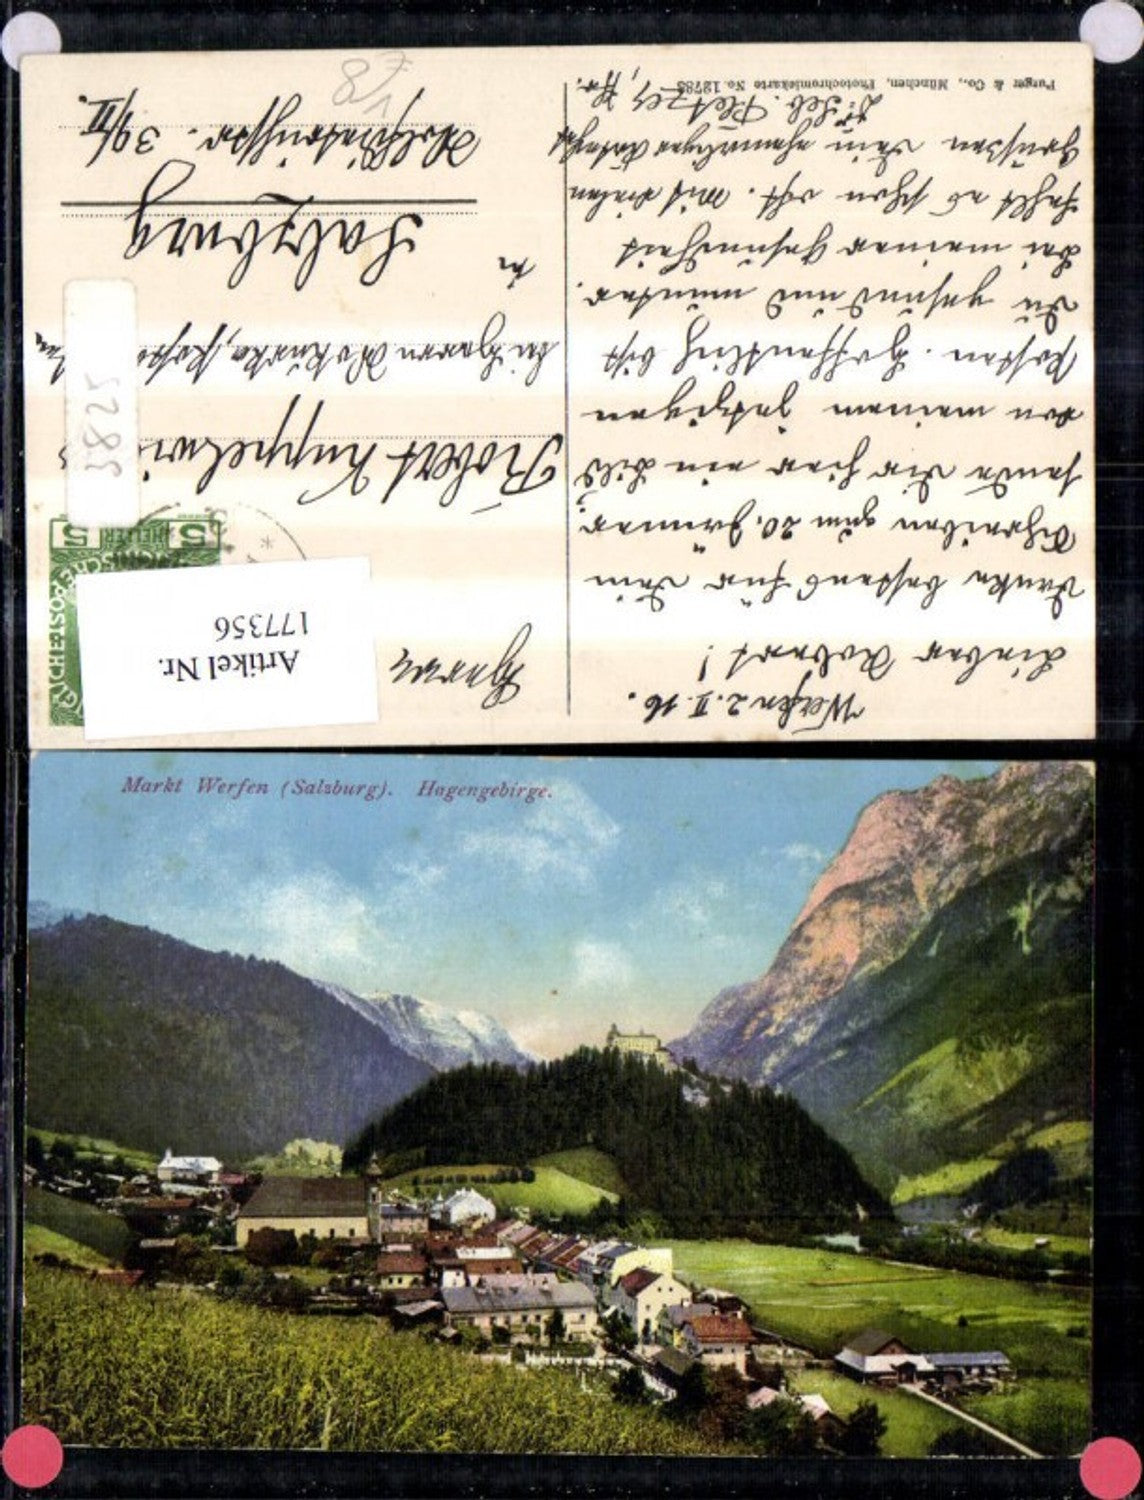 Werfen 2. II. 16.
Lieber Robert!
Danke bestens für Dein
Schreiben zum 20. Jänner,
sende Dir hier ein Bild
von meinem jetzigen
Posten. Hoffentlich bist
Du gesund und munter.
Bei meiner Gesundheit
fehlt es schon oft. Mit vielen
Grüßen Dein ehemaliger
Dr. Seb. Pletzer,
Purger & Co., München, Photochromiekarte No. 12783
Herrn
Robert Kuppelwi
bei Herrn
in
Salzburg
II.
5 HELLER 5
5285
Artikel Nr.
177356
Markt Werfen (Salzburg). Hagengebirge.